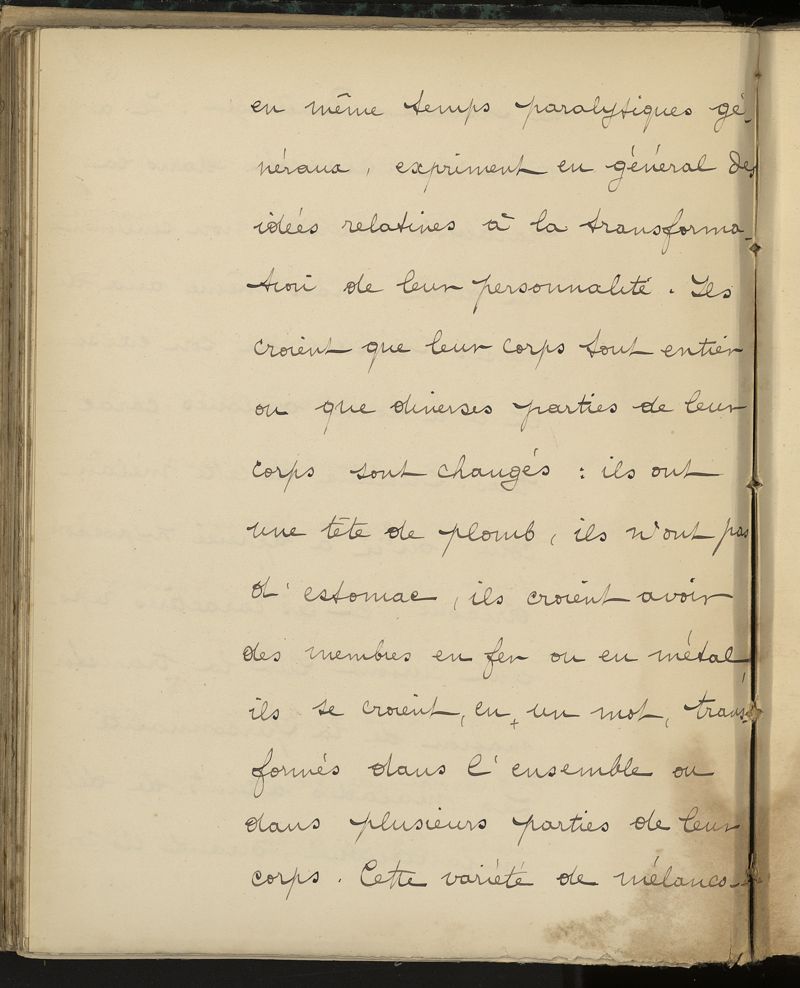 en même temps paralytiques gé-
néraux, expriment en général des
idées relatives à la transforma-
tion de leur personnalité. Ils
croient que leur corps tout entier
ou que diverses parties de leur
corps sont changés : ils ont
une tête de plomb, ils n'ont pas
d'estomac, ils croient avoir
des membres en fer ou en métal,
ils se croient, en, un mot, trans-
formés dans l'ensemble ou
dans plusieurs parties de leur
corps. Cette variété de mélanco-